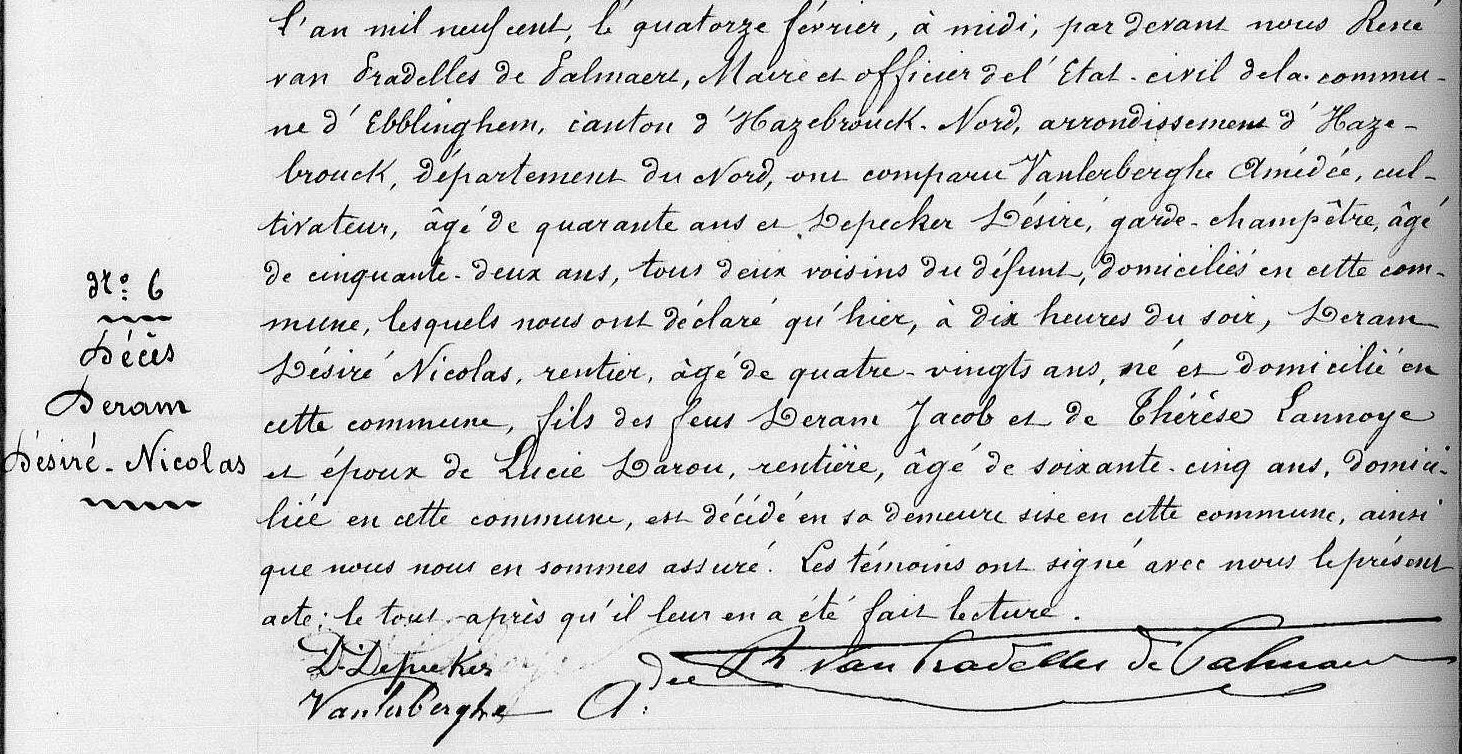 l'an mil neuf cent, le quatorze février, à midi, par devant nous René
van Pradelles de Palmaert, Maire et officier de l'Etat-civil de la commu-
ne d'Ebblinghem, canton d'Hazebrouck-Nord, arrondissement d'Haze-
brouck, département du Nord, ont comparu Vanlerberghe Amédée, cul-
tivateur, âgé de quarante ans et Depecker Désiré, garde-champêtre, âgé
de cinquante-deux ans, tous deux voisins du défunt, domiciliés en cette com-
N° 6
mune, lesquels nous ont déclaré qu'hier, à dix heures du soir, Deram
Décès
Désiré Nicolas, rentier, âgé de quatre-vingts ans, né et domicilié en
Deram
cette commune, fils des feus Deram Jacob et de Thérèse Lannoye
Désiré-Nicolas
et époux de Lucie Darou, rentière, âgé de soixante-cinq ans, domici-
liée en cette commune, est décédé en sa demeure sise en cette commune, ainsi
que nous nous en sommes assuré. Les témoins ont signé avec nous le présent
acte; le tout après qu'il leur en a été fait lecture.
D. Depecker
R van Pradelles de Palmaert
Vanlerberghe A.dée